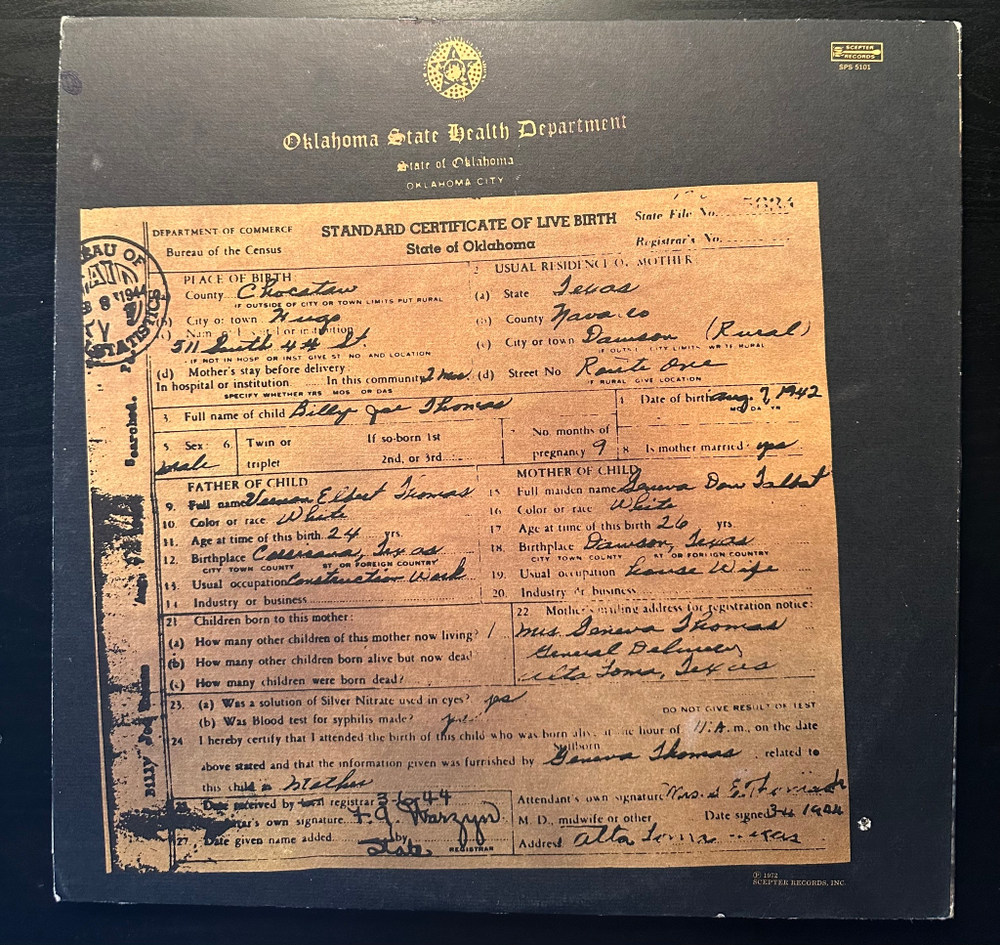 SCEPTER
RECORDS
SPS 5101
Oklahoma State Health Department
State of Oklahoma
OKLAHOMA CITY
DEPARTMENT OF COMMERCE
Bureau of the Census
STANDARD CERTIFICATE OF LIVE BIRTH
State of Oklahoma
State File No.
Registrar's No.
PLACE OF BIRTH
County Choctaw
IF OUTSIDE OF CITY OR TOWN LIMITS PUT RURAL
City or town Hugo
511 South 4th St.
IF NOT IN HOSP OR INST GIVE ST NO AND LOCATION
(d) Mother's stay before delivery:
In hospital or institution In this community 2 mos
SPECIFY WHETHER YRS MOS OR DAS
2 USUAL RESIDENCE OF MOTHER
(a) State Texas
County Navarro
(c) City or town Dawson (Rural)
(d) Street No Route One
IF RURAL GIVE LOCATION
3. Full name of child Billy Joe Thomas
4 Date of birth Aug. 7, 1942
MO DA YR
5 Sex male
6. Twin or triplet
If so-born 1st
2nd, or 3rd
7 No. months of pregnancy 9
8 Is mother married yes
FATHER OF CHILD
9. Full name Vernon Elbert Thomas
10. Color or race White
11. Age at time of this birth 24 yrs.
12. Birthplace Corsicana, Texas
CITY TOWN COUNTY ST OR FOREIGN COUNTRY
13. Usual occupation Construction Work
14 Industry or business
MOTHER OF CHILD
15 Full maiden name Geneva Talbot
16 Color or race White
17 Age at time of this birth 26 yrs
18. Birthplace Dawson, Texas
CITY TOWN COUNTY ST OR FOREIGN COUNTRY
19. Usual occupation House Wife
20. Industry or business
21 Children born to this mother:
(a) How many other children of this mother now living? 1
(b) How many other children born alive but now dead
(c) How many children were born dead?
22 Mother's mailing address for registration notice:
Mrs. Geneva Thomas
General Delivery
Alta Loma, Texas
23. (a) Was a solution of Silver Nitrate used in eyes? yes
(b) Was Blood test for syphilis made?
DO NOT GIVE RESULT OF TEST
24 I hereby certify that I attended the birth of this child who was born alive hour of 11 A.m., on the date
above stated and that the information given was furnished by Geneva Thomas, related to
this child as Mother
Date received by local registrar 3-6-44
own signature F. G. Warzyn
27 Date given name added by State
REGISTRAR
Attendant's own signature Mrs. S. E. Thomas
M. D., midwife or other
Date signed 1944
Address Alta Loma Texas
BUREAU OF
STATISTICS
Searched.
Billy Joe
℗ 1972
SCEPTER RECORDS, INC.